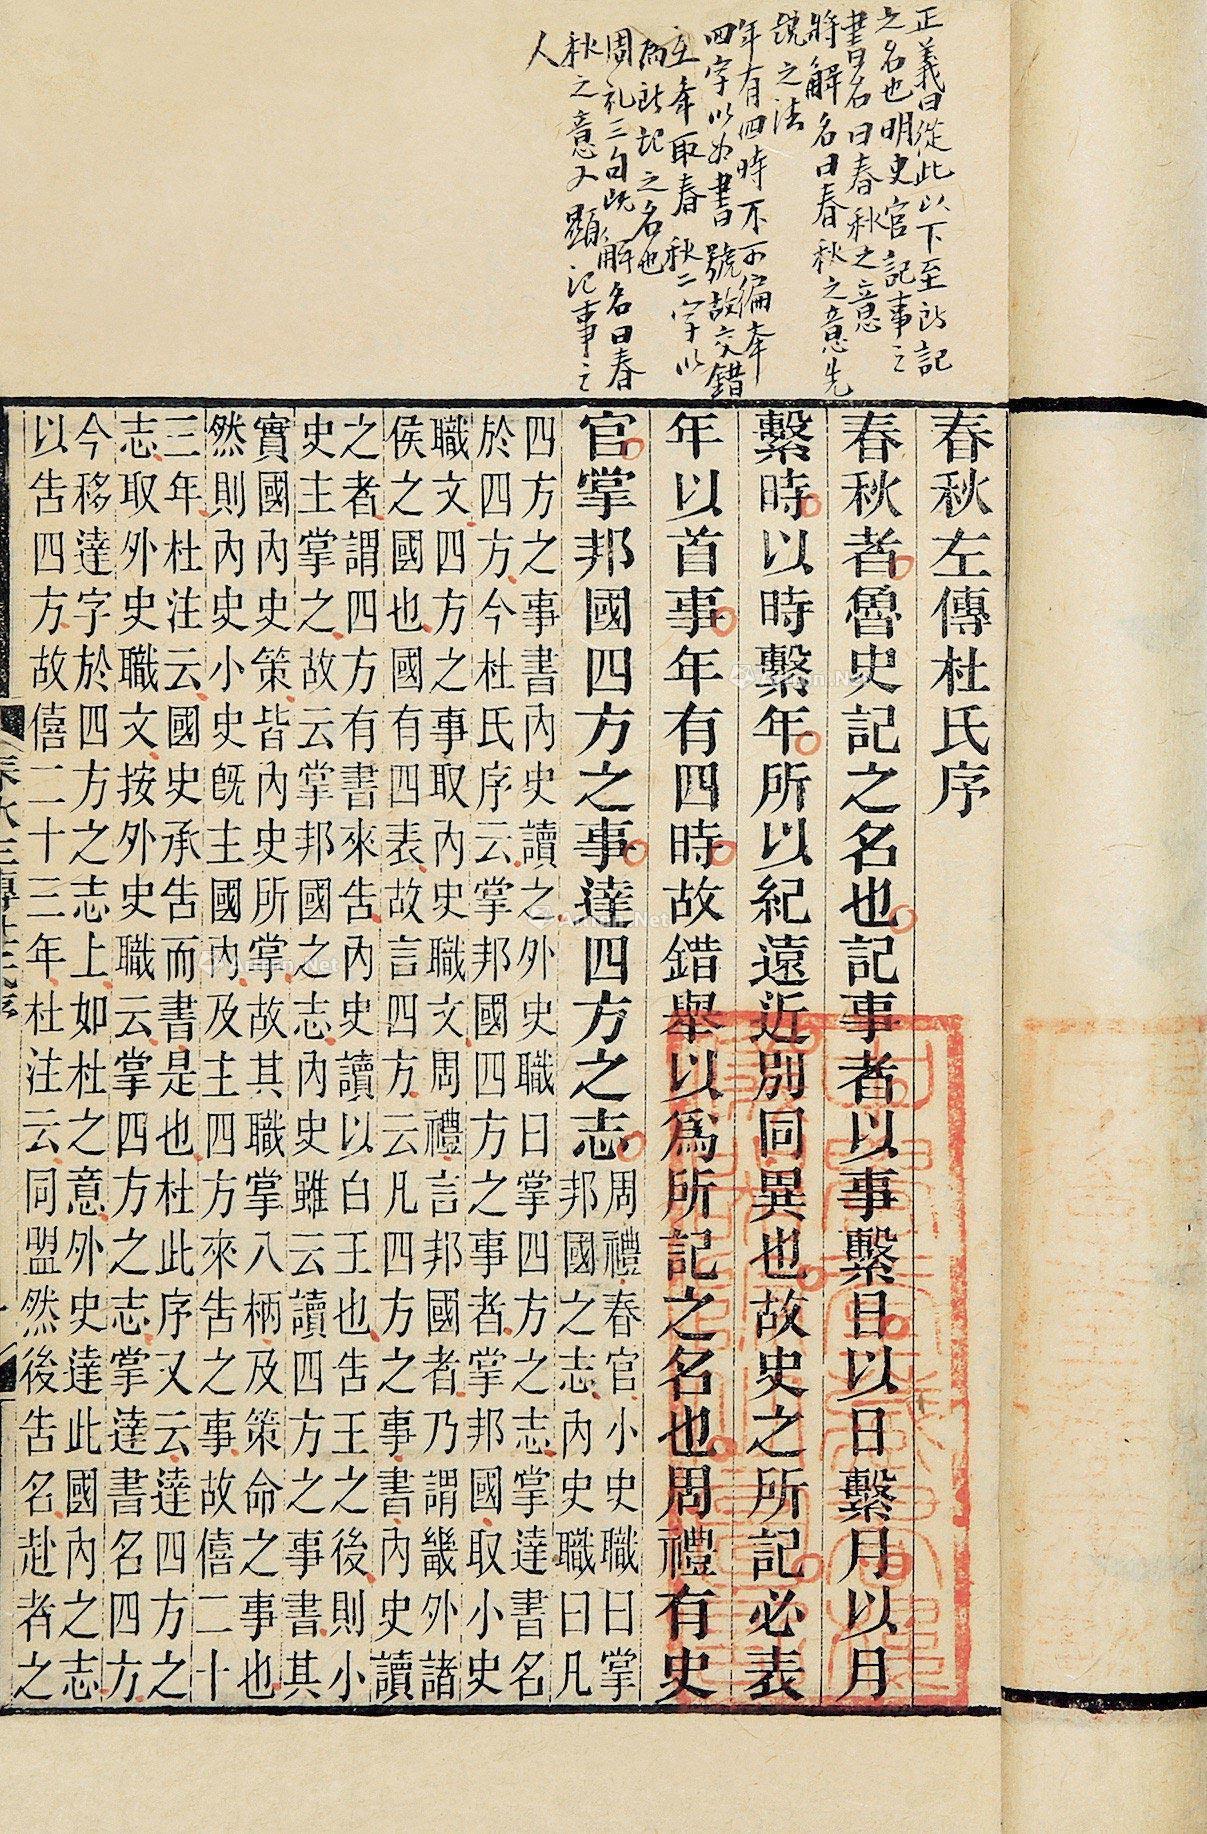 正義曰從此以下至所記
之名也明史官記事之
書名曰春秋之意
將解名曰春秋之意先
說之法
年有四時不可徧舉
四字以為書號故交錯
互舉取春秋二字以
為所記之名也
周礼三句既解名曰春
秋之意又顯記事之
人
春秋左傳杜氏序
春秋者魯史記之名也記事者以事繫日以日繫月以月
繫時以時繫年所以紀遠近別同異也故史之所記必表
年以首事年有四時故錯舉以爲所記之名也周禮有史
官掌邦國四方之事達四方之志
周禮春官小史職曰掌
邦國之志內史職曰凡
四方之事書內史讀之外史職曰掌四方之志掌達書名
於四方今杜氏序云掌邦國四方之事者掌邦國取小史
職文四方之事取內史職文周禮言邦國者乃謂畿外諸
侯之國也國有四表故言四方云凡四方之事書內史讀
之者謂四方有書來告內史讀以白王也告王之後則小
史主掌之故云掌邦國之志內史雖云讀四方之事書其
實國內史策皆內史所掌故其職掌八柄及策命之事也
然則內史小史旣主國內及主四方來告之事故僖二十
三年杜注云國史承告而書是也杜此序又云達四方之
志取外史職文按外史職云掌四方之志掌達書名四方
今移達字於四方之志上如杜之意外史達此國內之志
以告四方故僖二十三年杜注云同盟然後告名赴者之